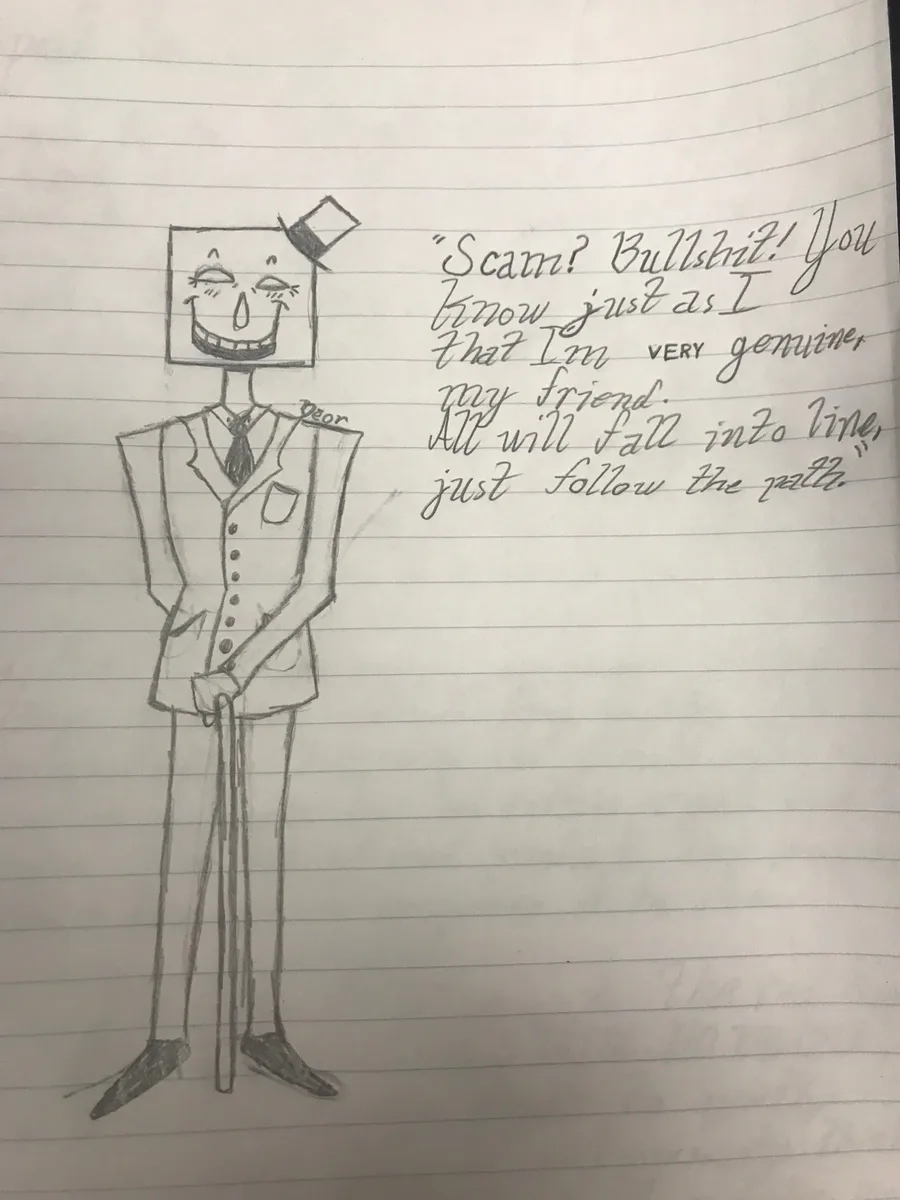 "Scam? Bullshit! You
know just as I
that Im VERY genuine,
my friend.
All will fall into line,
just follow the path."